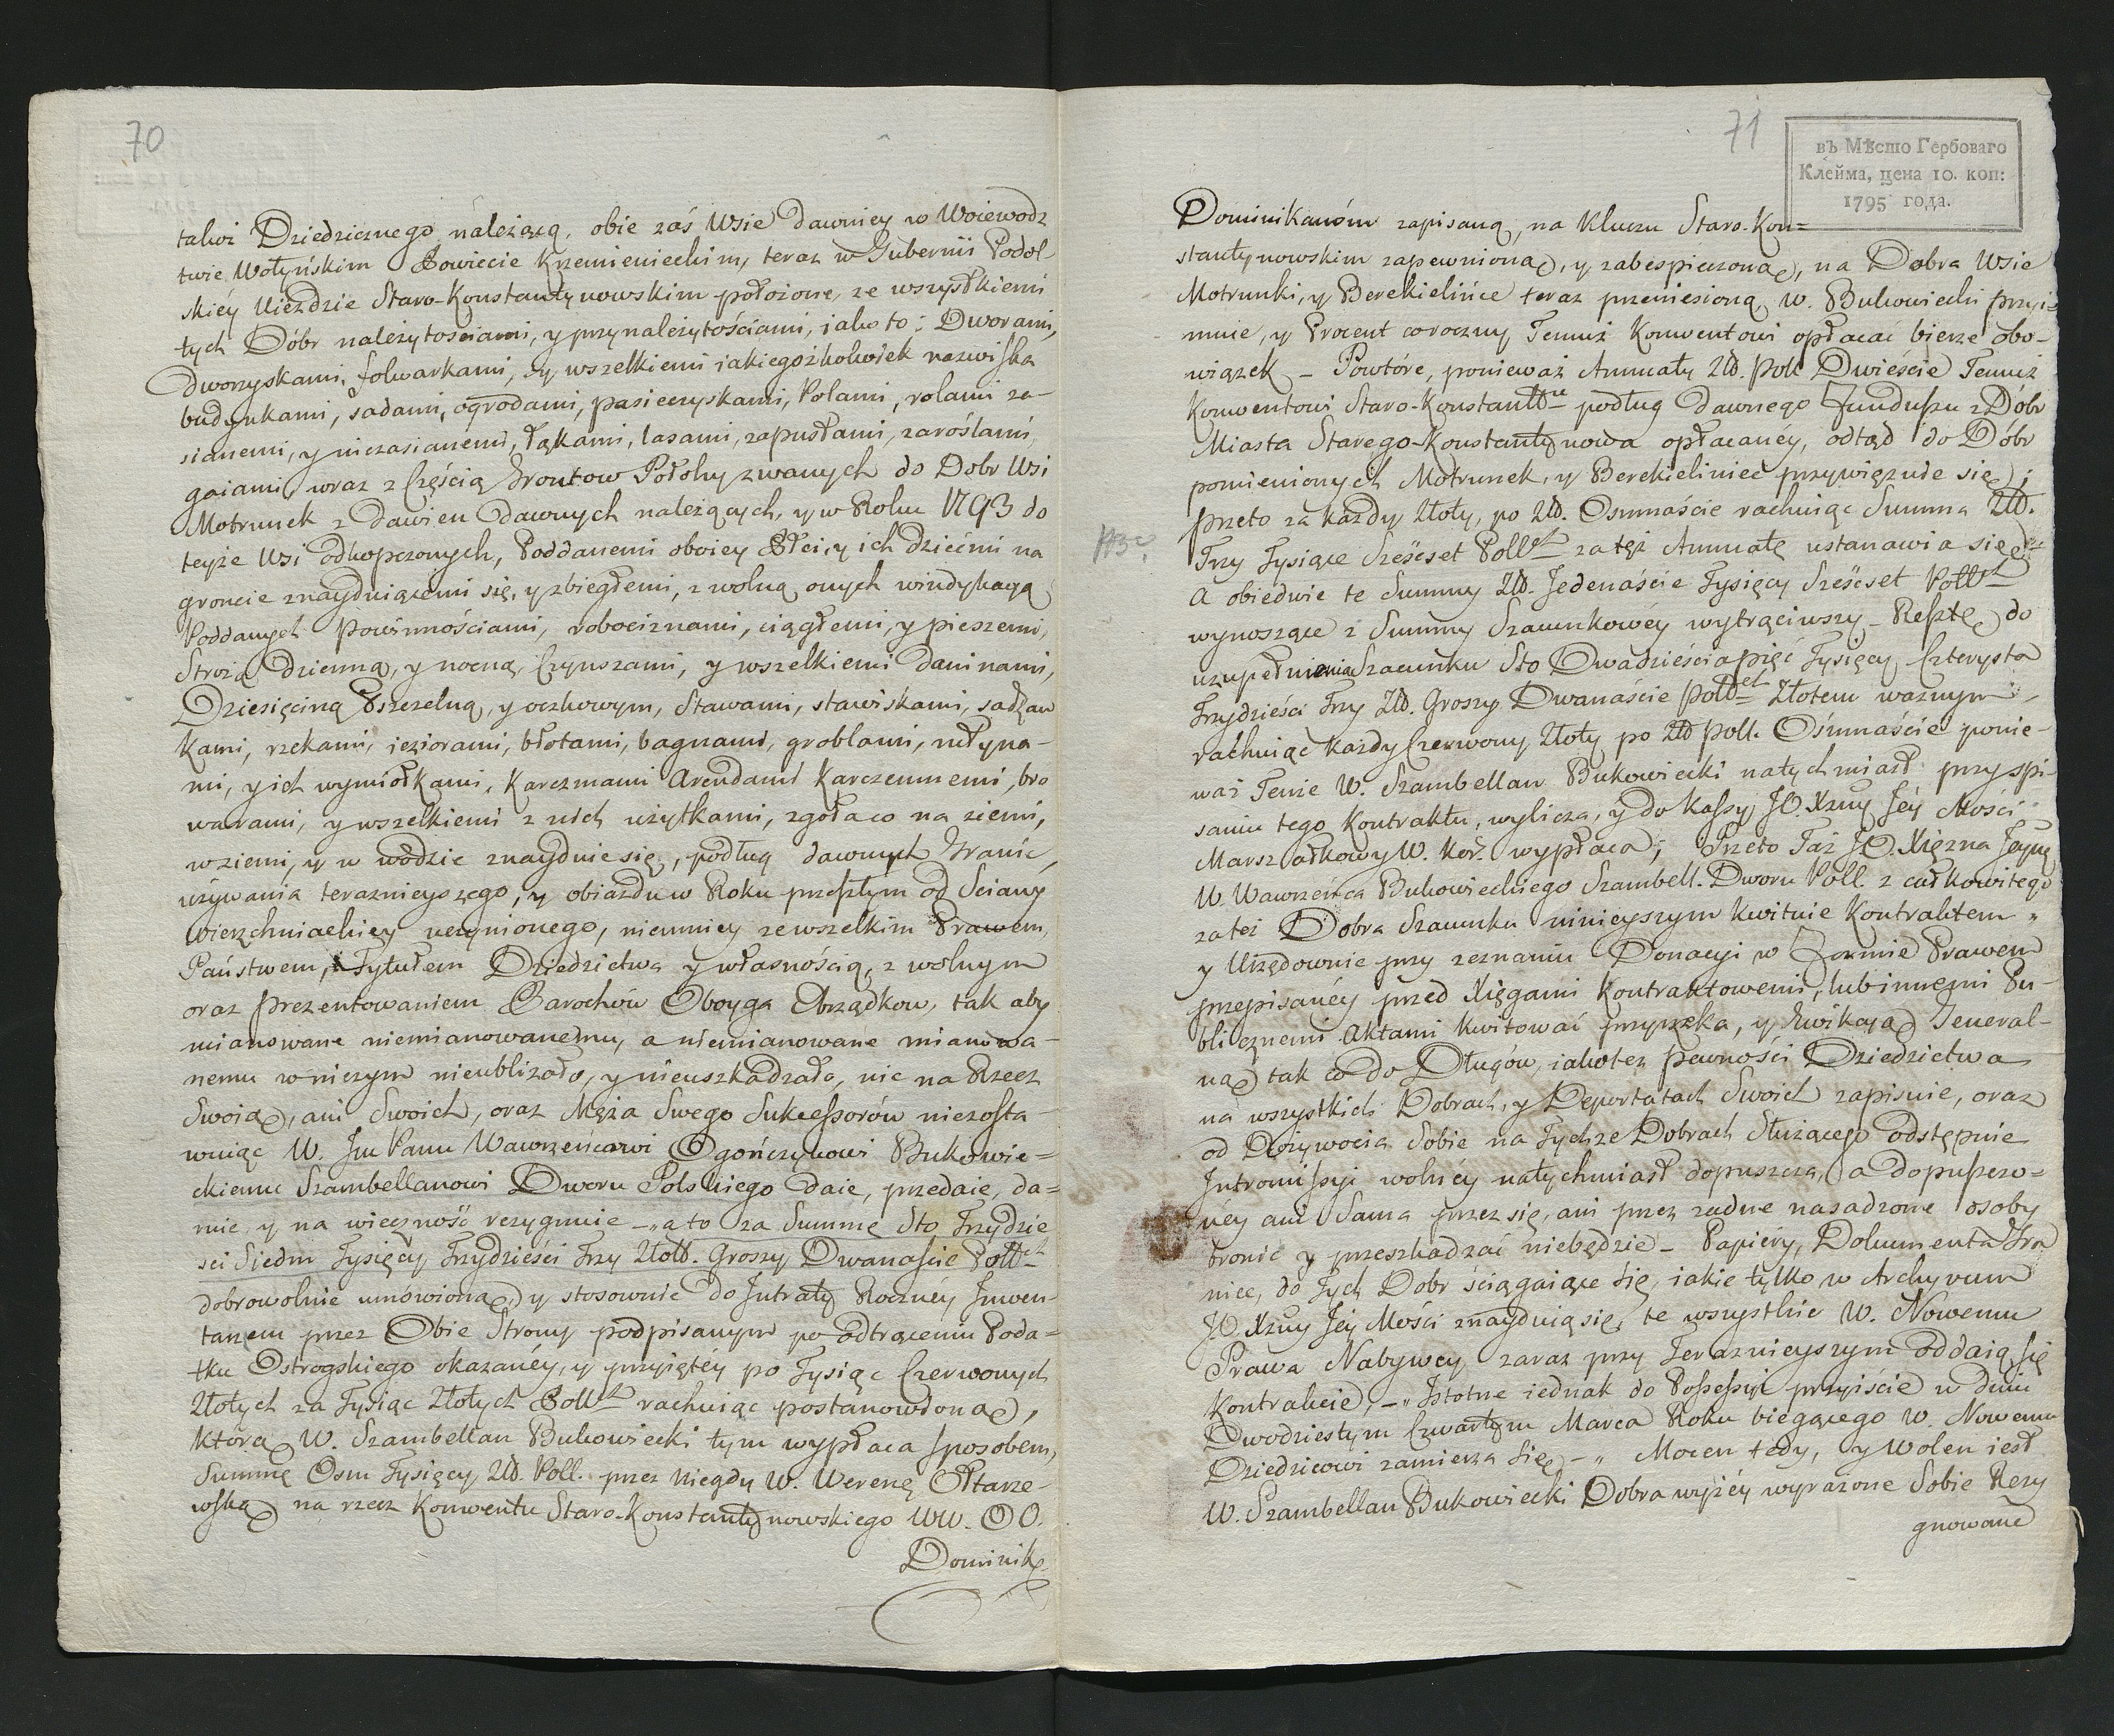 70
takoż Dziedzicznego należącą, obie zaś Wsie dawniey w Woiewodz
twie Wołyńskim Powiecie Krzemienieckim, teraz w Gubernii Podol-
skiéy Uieździe Staro-Konstantynowskim położone, ze wszystkiemi
tych Dóbr należytościami, y przynależytościami, iako to: Dworami,
Dworzyskami, folwarkami, y wszelkiemi iakiegożkolwiek nazwiska
budynkami, sadami, ogrodami, pasieczyskami, Polami, rolami za-
sianemi, y niezasianemi, łąkami, lasami, zapustami, zaroślami,
gaiami, wraz z Częścią Grontow Połohy zwanych do Dobr Wsi
Motrunek z dawien dawnych należących, y w Roku 1793 do
teyże Wsi odkopczonych, Poddanemi oboiey Płci, y ich dziećmi na
groncie znayduiącemi się, y zbiegłemi, z wolną onych windykacyą
Poddanych Powinnościami, robociznami, ciągłemi, y pieszemi,
Strożą dzienną, y nocną, Czynszami, y wszelkiemi daninami,
Dziesięciną Pszczelną, y oczkowym, Stawami, stawiskami, sadzaw
kami, rzekami, ieziorami, błotami, bagnami, groblami, młyna-
mi, y ich wymiołkami, Karczmami Arendami Karczemnemi, bro
warami, y wszelkiemi z nich użytkami, zgoła co na ziemi,
w ziemi, y w wodzie znayduie się, podług dawnych Granic,
używania teraznieyszego, y obiazdu w Roku przeszłym od Sciany
Wierzchniackiey uczynionego, niemniey ze wszelkim Prawem,
Państwem, Tytułem Dziedzictwa y własnością, z wolnym
oraz prezentowaniem Parochów Oboyga Obrządkow, tak aby
mianowane niemianowanemu, a niemianowane mianowa-
nemu w niczym nieubliżało, y nieuszkadzało, nic na Rzecz
Swoią, ani Swoich, oraz Męża Swego Sukcessorów niezosta
wuiąc W. Jmć Panu Wawrzencowi Ogończykowi Bukowie-
ckiemu Szambellanowi Dworu Polskiego daie, przedaie, da=
ruie y na wieczność rezygnuie -„ a to za Summę Sto Trzydzie
sci Siedm Tysięcy Trzydzieści Trzy Złotł. Groszy Dwanaście Polłch
dobrowolnie umówioną, y stosownie do Intraty Roczney Inwen-
tarzem przez Obie Strony podpisanym po odtrąceniu Poda=
tku Ostrogskiego okazanéy, y przyiętéy po Tysiąc Czerwonych
Złotych za Tysiąc Złotych Polłch rachuiąc postanowioną,
którą W. Szambellan Bukowiecki tym wypłaca sposobem,
Summę Osm Tysięcy Złł. Poll. przez niegdy W. Werenę Ołtarze-
wską na rzecz Konwentu Staro-Konstantynowskiego WW. OO.
Dominik
71
въ Мѣсто Гербоваго
Клейма, цена 10. коп:
1795 года.
Dominikanów zapisaną, na Kluczu Staro-Kon=
stantynowskim zapewnioną, y zabespieczoną, na Dobra Wsie
Motrunki, y Berekielińce teraz przeniesioną W. Bukowiecki przyi=
muie, y Procent coroczny Temuż Konwentowi opłacać bierze obo-
wiązek - Powtóre, ponieważ Annuaty Złł. Poll Dwieście Temuż
Konwentowi Staro-Konstantt podług dawnego Funduszu z Dóbr
Miasta Starego-Konstantynowa opłacanéy, odtąd do Dóbr
pomienionych Motrunek, y Berekieliniec przywięzuie się;
przeto za każdy Złoty, po Złł. Osmnaście rachuiąc Summa Złł.
Trzy Tysiące Sześćset Pollch za tęż Annuatę ustanawia się
A obiedwie te Summy Złł. Jedenaście Tysięcy Sześćset Pollch
wynoszące z Summy Szacunkowéy wytrąciwszy - Resztę do
uzupełnienia Szacunku Sto Dwadzieściapięć Tysięcy Czterysta
Trzydzieści Trzy Złł. Groszy Dwanaście Pollch Złotem ważnym
rachuiąc każdy Czerwony Złoty po Złł Poll. Ośmnaście ponie-
waż Tenże W. Szambellan Bukowiecki natychmiast przy spi-
saniu tego Kontraktu, wylicza, y do Kassy JO. Xzny Jéy Mości
Marszałkowy W. Kor. wypłaca; Przeto Taż JO. Xiężna Jeymć
W. Wawrzeńca Bukowieckiego Szambell. Dworu Poll. z całkowitego
za też Dobra Szacunku ninieyszym kwituie Kontraktem „
y Urzędownie przy zeznaniu Donacyi w Formie Prawem
przepisanéy przed Xięgami Kontraktowemi, lub innemi Pu-
blicznemi Aktami kwitować przyrzeka, y Ewikcyą General-
ną tak co do Długów, iakoteż pewności Dziedzictwa
na wszystkich Dobrach, y Deportatach Swoich zapisuie, oraz
od Dożywocia Sobie na Tychże Dobrach Służącego odstępuie
Intromissyi wolnéy natychmiast dopuszcza, a dopuszczo=
néy ani Sama przez się, ani przez żadne nasadzone osoby
bronić y przeszkadzać niebędzie - Papiéry, Dokumenta Gra
nice, do Tych Dobr ściągaiące się, iakie tylko w Archywum
JO. Xzny Jéy Mości znayduią się, te wszystkie W. Nowemu
Prawa Nabywcy zaraz przy Teraznieyszym oddaią się
Kontrakcie, -„ Istotne iednak do Possessyi przyiście w dniu
Dwudziestym Czwartym Marca Roku bieżącego W. Nowemu
Dziedzicowi zamierza się -„ Mocen tedy, y Wolen iest
W. Szambellan Bukowiecki Dobra wyżéy wyrażone Sobie Rezy
gnowane